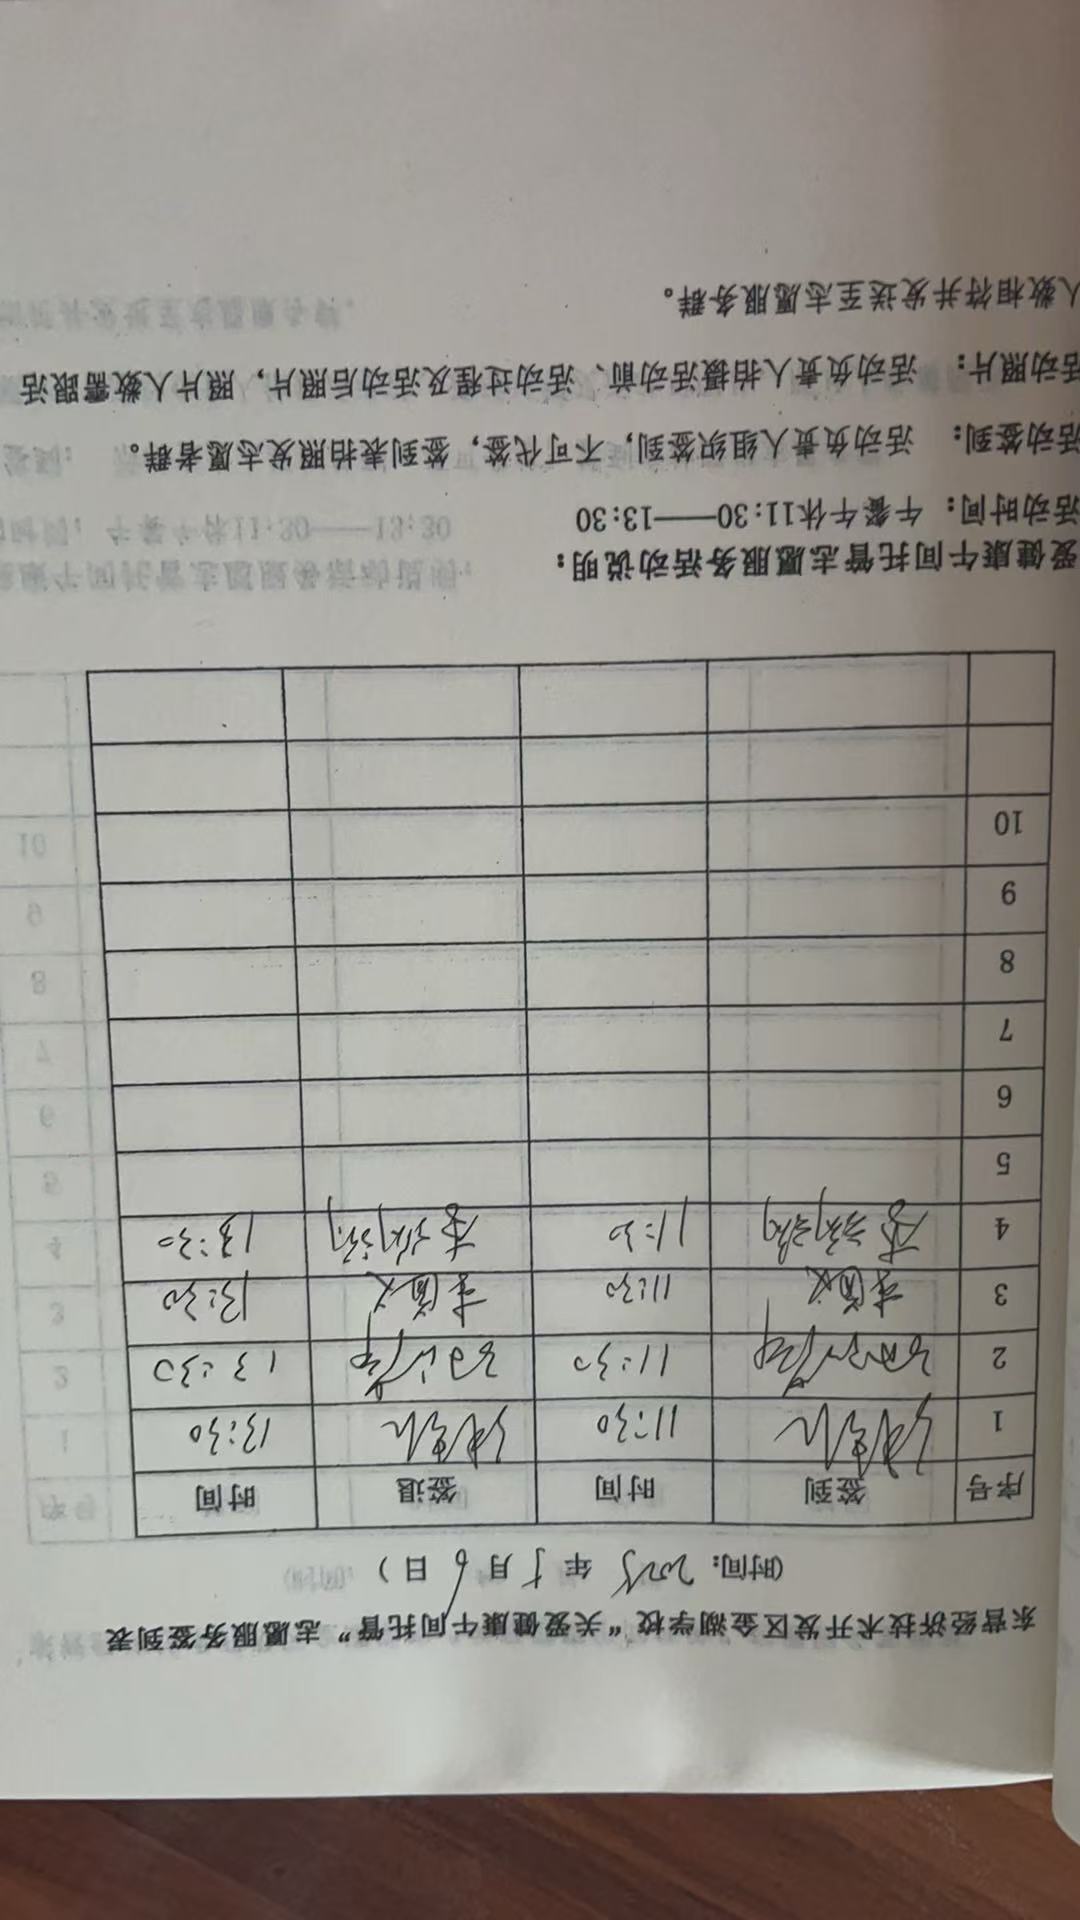 东营经济技术开发区金湖学校“关爱健康午间托管”志愿服务签到表
(时间: 2025 年 5 月 6 日)
序号 签到 时间 签退 时间
1 11:30 13:30
2 11:30 13:30
3 11:30 13:30
4 11:30 13:30
5
6
7
8
9
10
爱健康午间托管志愿服务活动说明:
活动时间: 午餐午休11:30——13:30
活动签到: 活动负责人组织签到, 不可代签, 签到表拍照发志愿者群。
活动照片: 活动负责人拍摄活动前、活动过程及活动后照片, 照片人数需跟活
人数相符并发送至志愿服务群。